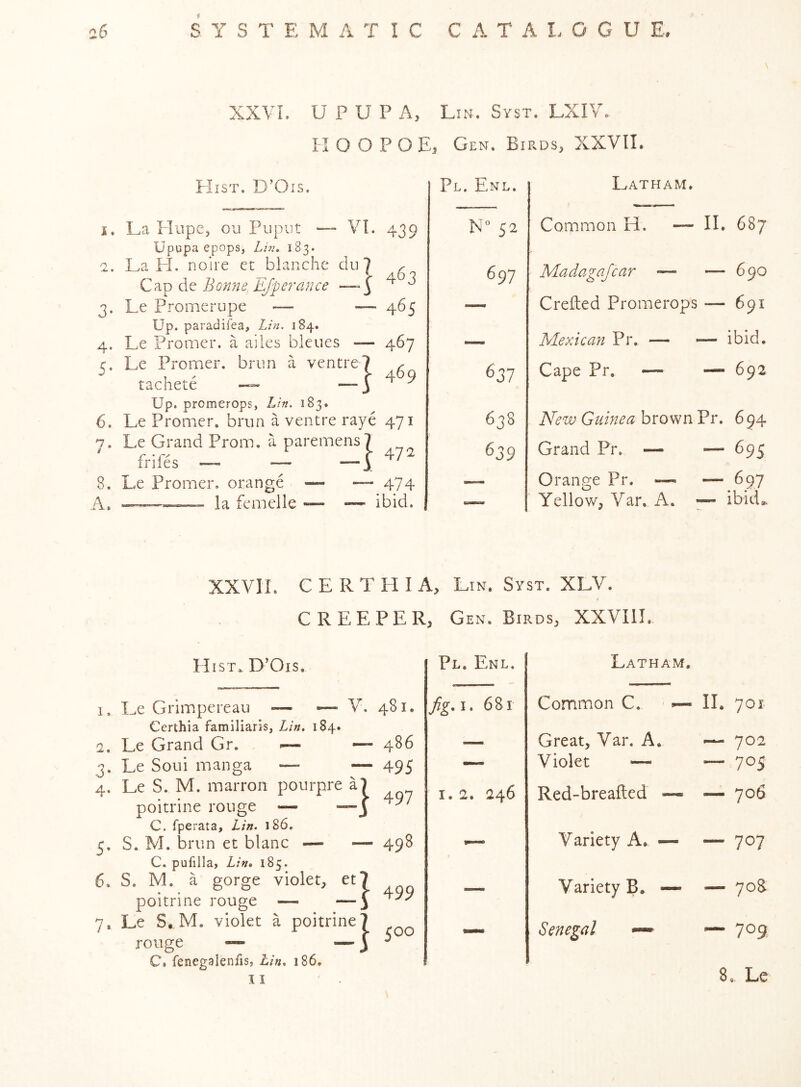 26 SYSTEMATIC CATALOGUE.
XXVI. UPUPA, Lin. Syst. LXIV.
HOOPOE, Gen. Birds, XXVII.
Hist. D'Ois. Pl. Enl. Latham.
1. La Hupe, ou Puput — VI. 439 N° 52 Common H. — II. 687
Upupa epops, Lin. 183.
2. La H. noire et blanche du } 463 697 Madagaſcar — — 690
Cap de Bonne Eſperance —
3. Le Promerupe — — 465 — Creſted Promerops — 691
Up. paradiſea, Lin. 184.
4. Le Promer. à ailes bleues — 467 — Mexican Pr. — — ibid.
5. Le Promer. brun à ventre } 469 637 Cape Pr. — — 692
tacheté — —
Up. promerops, Lin. 183.
6. Le Promer. brun à ventre rayé 471 638 New Guinea brown Pr. 694
7. Le Grand Prom. à paremens } 472 639 Grand Pr. — — 695
friſés — — —
8. Le Promer. orangé — — 474 — Orange Pr. — — 697
A. ——— la femelle — — ibid. — Yellow, Var. A. — ibid.
XXVII. CERTHIA, Lin. Syst. XLV.
CREEPER, Gen. Birds, XXVIII.
Hist. D'Ois. Pl. Enl. Latham.
1. Le Grimpereau — — V. 481. fig. 1. 681 Common C. — II. 701
Certhia familiaris, Lin. 184.
2. Le Grand Gr. — — 486 — Great, Var. A. — 702
3. Le Soui manga — — 495 — Violet — — 705
4. Le S. M. marron pourpre à } 497 1. 2. 246 Red-breaſted — — 706
poitrine rouge — —
C. ſperata, Lin. 186.
5. S. M. brun et blanc — — 498 — Variety A. — — 707
C. puſilla, Lin. 185.
6. S. M. à gorge violet, et } 499 — Variety B. — — 708
poitrine rouge — —
7. Le S. M. violet à poitrine } 500 — Senegal — — 709
rouge — —
C. ſenegalenſis, Lin. 186.
II 8. Le